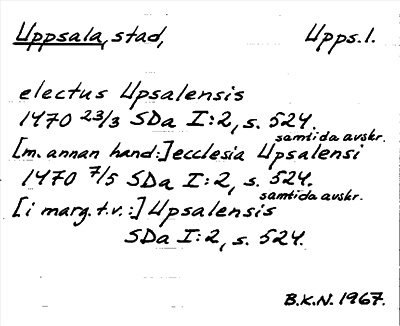 Uppsala, stad, Upps.l.
electus Upsalensis
1470 23/3 SDa I:2, s. 524.
samtida avskr.
[m. annan hand:] ecclesia Upsalensi
1470 7/5 SDa I:2, s. 524.
samtida avskr.
[i marg. t.v.:] Upsalensis
SDa I:2, s. 524.
B.K.N. 1967.